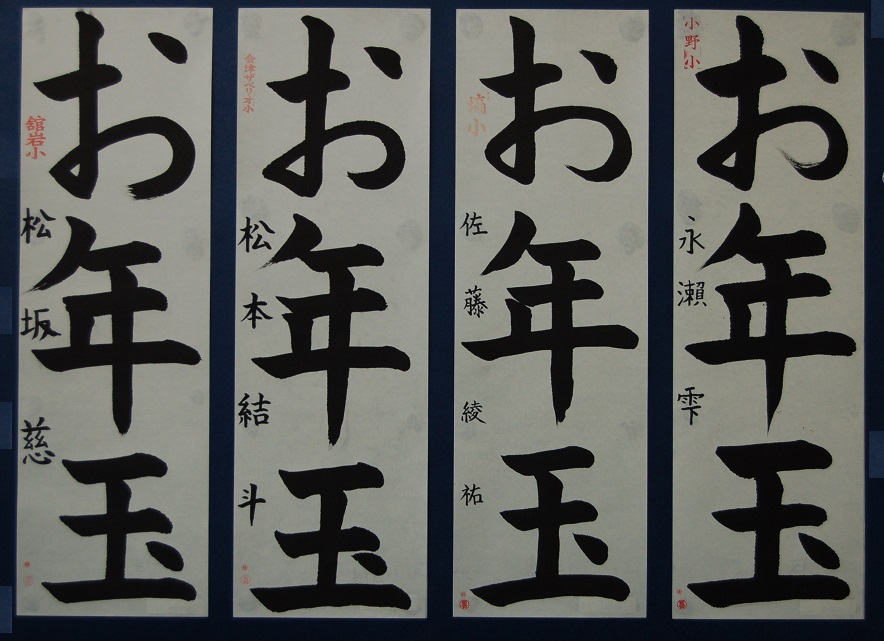 お年玉
小野小
永瀬 雫
お年玉
塙小
佐藤 綾祐
お年玉
会津ザベリオ小
松本 結斗
お年玉
舘岩小
松坂 慈